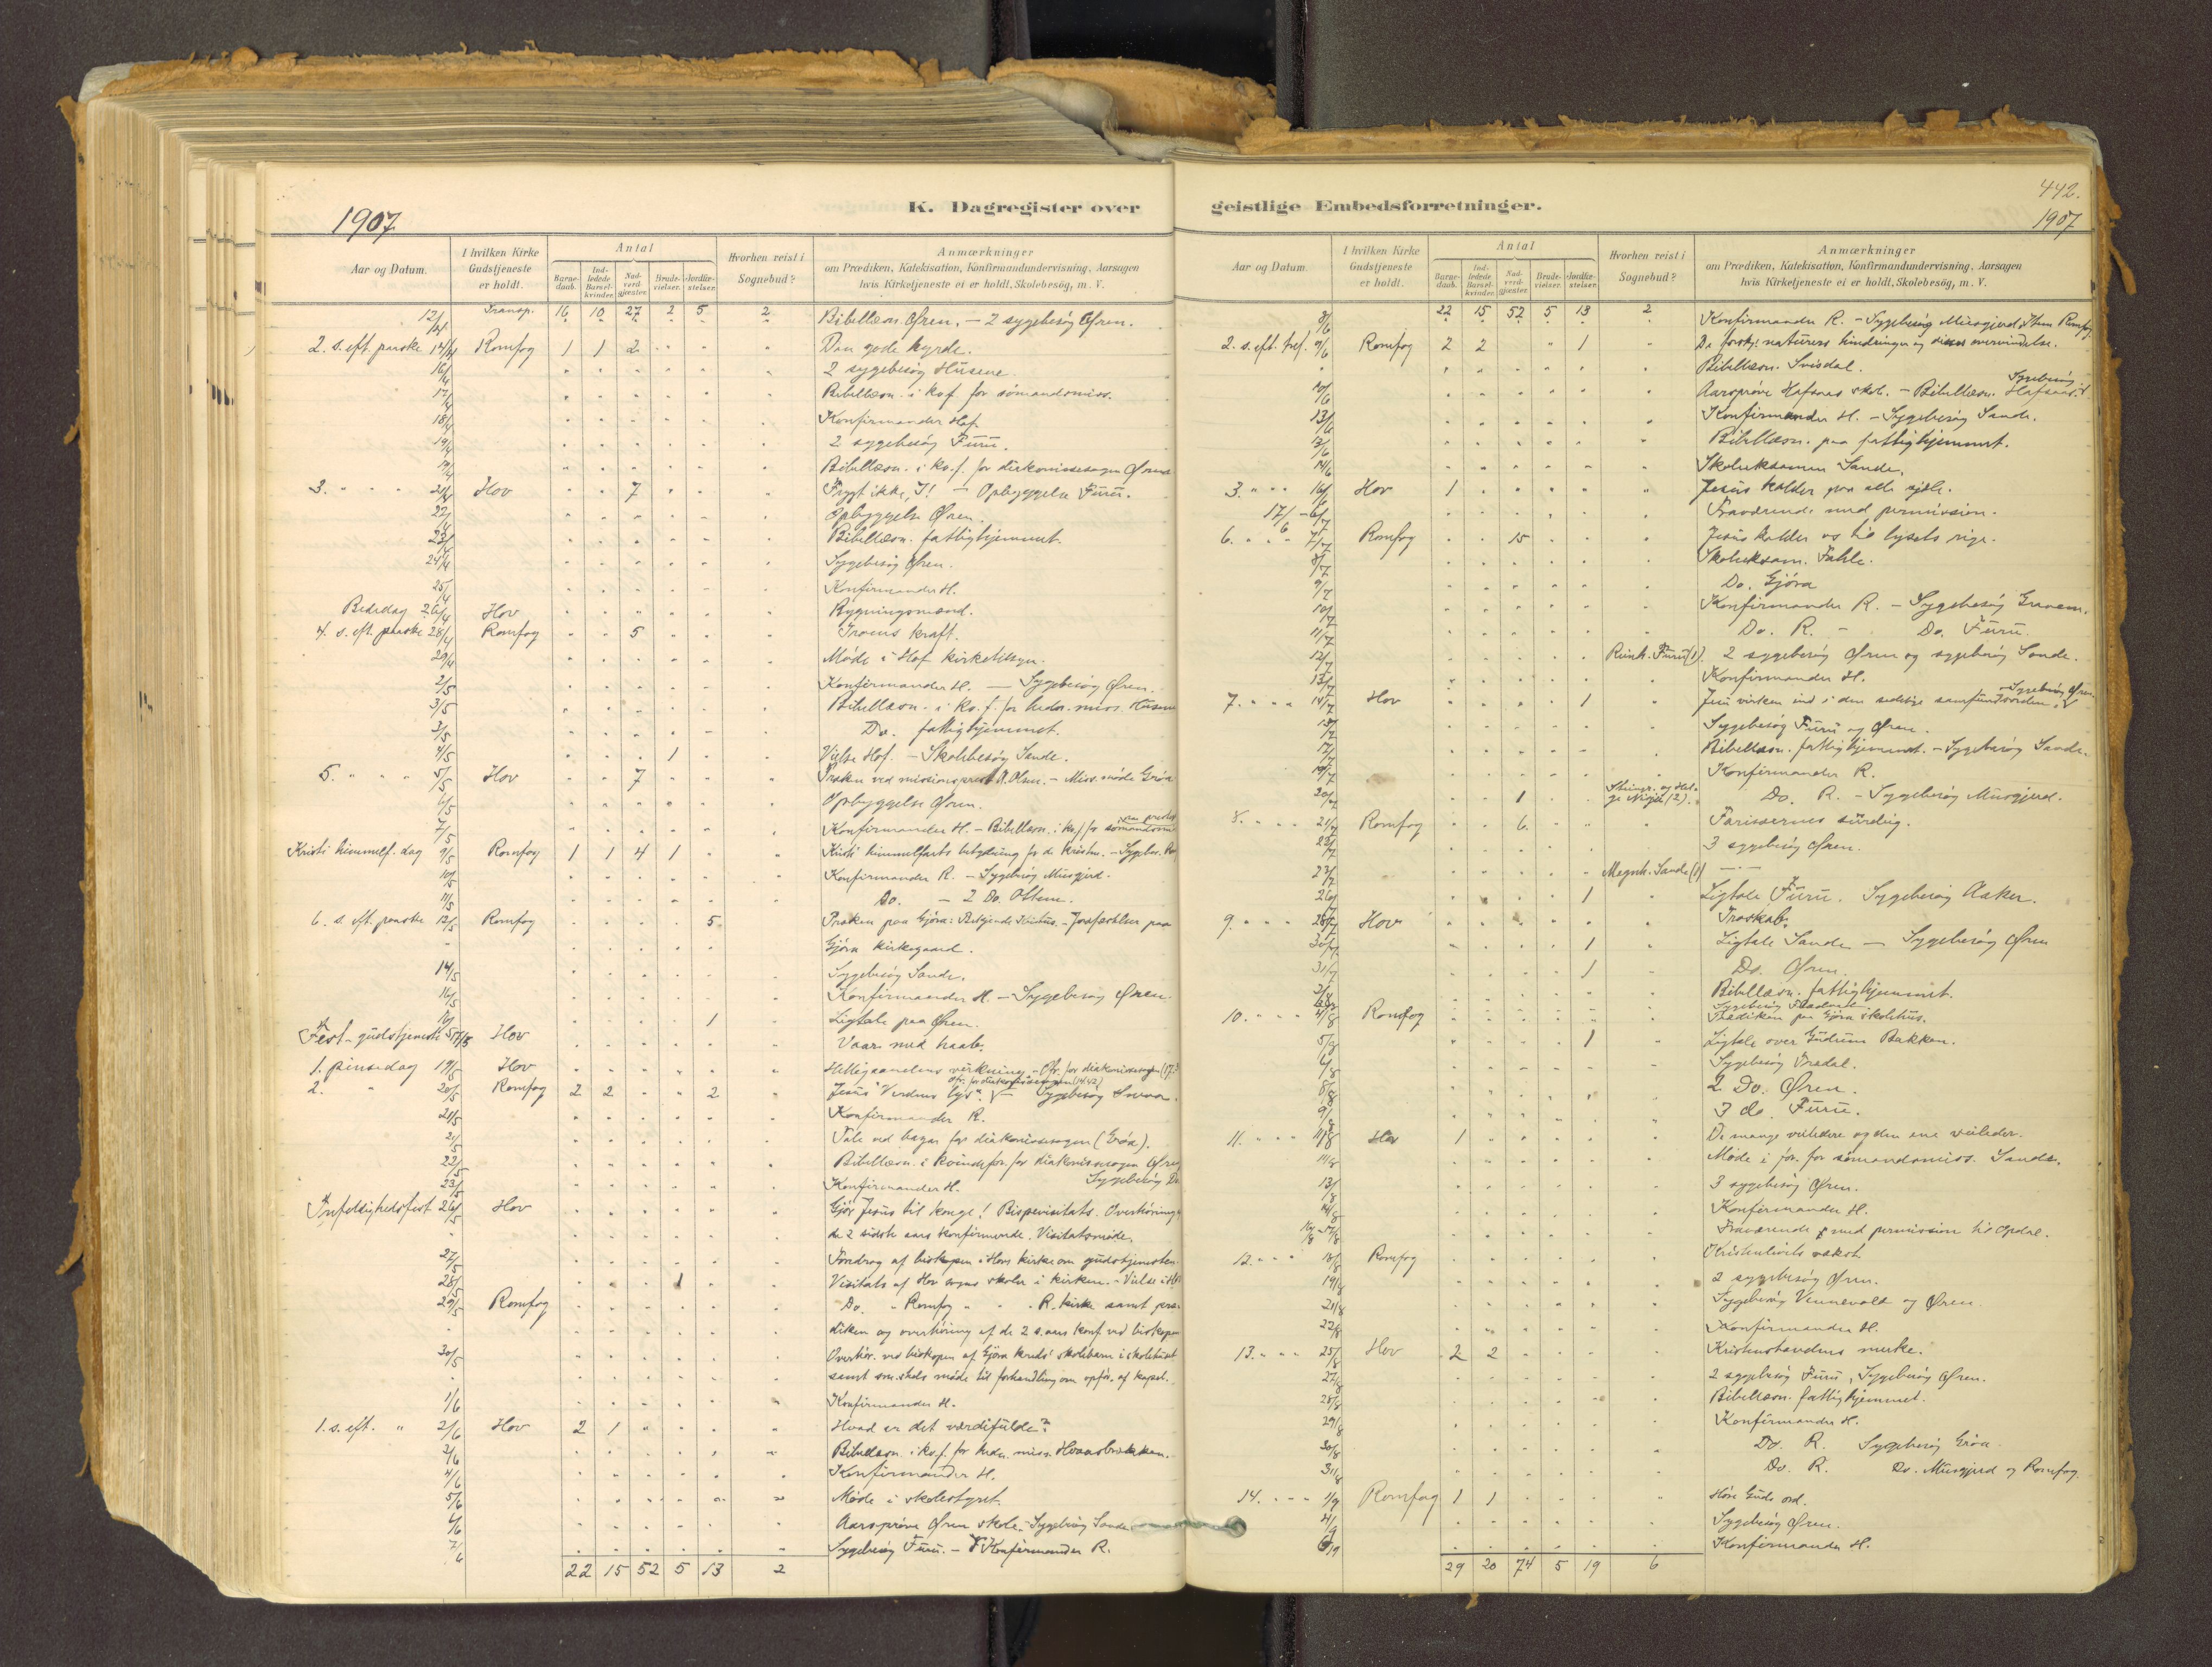 K. Dagregister over
1907
Aar og Datum.
I hvilken Kirke Gudstjeneste er holdt.
Antal
Barnedaab.
Indledede Barselkvinder.
Nadverdgjæster.
Brudevielser.
Jordfæstelser.
Hvorhen reist i Sognebud?
Anmærkninger
om Prædiken, Katekisation, Konfirmandundervisning, Aarsagen
hvis Kirketjeneste ei er holdt, Skolebesøg, m. V.
12/4 Transp. 16 10 27 2 5 2 Bibellæsn. Øren. — 2 sygebesøg Øren.
2. s. eft. paaske 14/4 Romfog 1 1 2 Den gode hyrde.
16/4 2 sygebesøg Husene.
17/4 Bibellæsn. i kvf. for sømandsmiss.
18/4 Konfirmander Hof.
19/4 2 sygebesøg Furu.
19/4 Bibellæsn. i kv.f. for diakonissesagen Øren
3. " " " 21/4 Hov 7 Frygt ikke, I! — Opbyggelse Furu.
22/4 Opbyggelse Øren.
23/4 Bibellæsn. fattighjemmet.
24/4 Sygebesøg Øren.
25/4 Konfirmander H.
Bededag 26/4 Hov Bygningsmænd.
4. s. eft. paaske 28/4 Romfog 5 Troens kraft.
29/4 Møde i Hof kirketilsyn.
2/5 Konfirmander H. — Sygebesøg Øren.
3/5 Bibellæsn. i kv.f. for hedn. miss. Husene
3/5 Do. fattighjemmet.
4/5 1 Vielse Hof. — Skolebesøg Sande.
5. " " " 5/5 Hov 7 Præken ved missionsprest A. Olsen. — Miss. møde Grøa
6/5 Opbyggelse Øren.
7/5 Konfirmander H. — Bibellæsn. i kv.f. for sømandsmi
Kristi himmelf. dag 9/5 Romfog 1 1 4 1 Kristi himmelfarts betydning for de kristne. — Sygebes. Rom
10/5 Konfirmander R. — Sygebesøg Musgjerd.
11/5 Do. — 2 Do. Ottem.
6. s. eft. paaske 12/5 Romfog 5 Præken paa Gjøra: Jordfæstelser paa
Gjøra kirkegaard.
14/5 Sygebesøg Sande.
16/5 Konfirmander H. — Sygebesøg Øren.
16/5 1 Ligtale paa Øren.
Fest-gudstjeneste 17/5 Hov Vaar med haab.
1. pinsedag 19/5 Hov Helligaandens virkning. — Ofr. for diakonissesagen (17.
ofr. for diakonissesagen (14.42)
2. " 20/5 Romfog 2 2 2 Jesus "Verdens lys". — Sygebesøg
21/5 Konfirmander R.
21/5 Tale ved basar for diakonissesagen (Grøa).
22/5 Bibellæsn. i kvindefor. for diakonissesagen Øren
23/5 Konfirmander H. Sygebesøg Do
Trefoldighedsfest 26/5 Hov Gjør Jesus til konge! Bispevisitats. Overhøring
de 2 sidste aars konfirmerede. Visitatsmøde.
27/5 Foredrag af biskopen i Hov kirke om gudstjenesten
28/5 1 Visitats af Hov sogns skoler i kirken. — Vielse i H
29/5 Romfog Do. " Romfog " " R. kirke samt præ-
diken og overhøring af de 2 s. aars konf. ved biskopen
30/5 Overhør. ved biskopen af Gjøra kreds' skolebarn i skolehuset
samt sms.steds møde til forhandling om opfør. af kapel.
1/6 Konfirmander H.
1. s. eft. " 2/6 Hov 2 1 Hvad er det værdifulde?
2/6 Bibellæsn. i kv.f. for hedn. miss. Hvansbrækken.
4/6 Konfirmander H.
5/6 Møde i skolestyret.
6/6 Aarsprøve Øren skole. — Sygebesøg Sande
7/6 Sygebesøg Furu. — Konfirmander R.
22 15 52 5 13 2
geistlige Embedsforretninger.
442.
1907
Aar og Datum.
I hvilken Kirke Gudstjeneste er holdt.
Antal
Barnedaab.
Indledede Barselkvinder.
Nadverdgjæster.
Brudevielser.
Jordfæstelser.
Hvorhen reist i Sognebud?
Anmærkninger
om Prædiken, Katekisation, Konfirmandundervisning, Aarsagen
hvis Kirketjeneste ei er holdt, Skolebesøg, m. V.
8/6 22 15 52 5 13 2 Konfirmander R. — Sygebesøg Musgjerd, Romfog.
2. s. eft. tref. 9/6 Romfog 2 2 1 De forskj. naturers hindringer og deres overvindelse.
Bibellæsn. Svisdal.
10/6 Aarsprøve Hafsaas skole. — Bibellæsn. Sygebesøg Hafsaas.
13/6 Konfirmander H. — Sygebesøg Sande.
13/6 Bibellæsn. paa fattighjemmet.
14/6 Skoleeksamen Sande.
3. " " " 16/6 Hov 1 Jesus kalder paa alle sjæle.
17/6 — 6/7 Fraværende med permission.
6. " " " 7/7 Romfog 15 Jesus kalder os til lysets rige.
8/7 Skoleeksam. Fahle.
9/7 Do. Gjøra
10/7 Konfirmander R. — Sygebesøg Gravem.
11/7 Do. R. — Do. Furu.
12/7 Furu (1). 2 sygebesøg Øren og sygebesøg Sande.
13/7 Konfirmander H.
7. " " " 14/7 Hov 1 Jesu virken ind i den sedelige samfundsorden. — Sygebesøg Øren.
15/7 Sygebesøg Furu og Øren.
17/7 Bibellæsn. fattighjemmet. — Sygebesøg Sande.
19/7 Konfirmander R.
20/7 1 (2). Do. R. — Sygebesøg Musgjerd.
8. " " " 21/7 Romfog 6 Farisæernes surdeig.
22/7 3 sygebesøg Øren.
23/7 Sande (1) — " —
26/7 1 Ligtale Furu. Sygebesøg Aaker.
9. " " " 28/7 Hov Troskab.
30/7 1 Ligtale Sande — Sygebesøg Øren
31/7 1 Do. Øren.
2/8 Bibellæsn. fattighjemmet.
10. " " " 4/8 Romfog Prædiken paa Gjøra skolehus.
5/8 1 Ligtale over Gudrun Bakken.
6/8 Sygebesøg Vradal.
8/8 2 Do. Øren.
9/8 3 do. Furu.
11. " " " 11/8 Hov 1 De mange veiledere og den ene veileder.
11/8 Møde i for. for sømandsmiss. Sande.
13/8 3 sygebesøg Øren.
14/8 Konfirmander H.
16/8 — 17/8 Fraværende med permission til Opdal.
12. " " " 18/8 Romfog Kristenlivets vækst.
19/8 2 sygebesøg Øren.
21/8 Sygebesøg Vennevold og Øren.
22/8 Konfirmander H.
13. " " " 25/8 Hov 2 2 Kristenstandens merke.
27/8 2 sygebesøg Furu, Sygebesøg Øren.
28/8 Bibellæsn. fattighjemmet.
29/8 Konfirmander H.
30/8 Do. R. Sygebesøg Grøa
31/8 Do. R. Do. Musgjerd og Romfog.
14. " " " 1/9 Romfog 1 1 Høre Guds ord.
4/9 Sygebesøg Øren.
6/9 Konfirmander H.
29 20 74 5 19 6